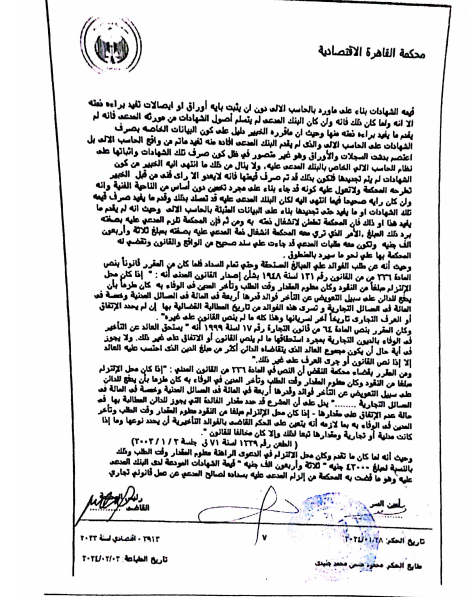 محكمة القاهرة الاقتصادية
قيمه الشهادات بناء على ماورد بالحاسب الالى دون ان يثبت بايه أوراق او ايصالات تفيد براءه ذمته
الا انه ولما كان ذلك فانه وان كان البنك المدعى لم يتسلم أصول الشهادات من مورثه المدعى فانه لم
يقدم ما يفيد براءه ذمته منها وحيث ان ماقرره الخبير دليل على كون البيانات الخاصه بصرف
الشهادات على الحاسب الالى والذى لم يقدم البنك المدعى افاده منه تفيد ماتم من واقع الحاسب الالى بل
اعتصم بدشت السجلات والأوراق وهو غير متصور فى ظل كون صرف تلك الشهادات واثباتها على
نظام الحاسب الالى الخاص بالبنك المدعى عليه، ولا ينال من ذلك ما انتهى اليه الخبير من كون
الشهادات لم يتم تجديدها فتكون بذلك قد تم صرف قيمتها فانه لايعدو الا راى فنى من قبل الخبير
تطرحه المحكمة ولاتعول عليه كونه قد جاء بناء على مجرد تخمين دون أساس من الناحية الفنية وانه
وان كان رايه صحيحا فيما انتهى اليه لكان البنك المدعى عليه قد تمسك بذلك وقدم ما يفيد صرف قيمه
تلك الشهادات او ما يفيد حتى تجديدها بناء على البيانات المثبتة بالحاسب الالى وحيث انه لم يقدم ما
يفيد هذا او ذاك فإن المحكمة تطمئن لانشغال ذمته به ومن ثم فإن المحكمة تلزم المدعى عليه بصفته
برد ذلك المبلغ ,الأمر الذي ترى معه المحكمة انشغال ذمة المدعي عليه بصفته بمبلغ ثلاثة وأربعون
الف جنيه وتكون معه طلبات المدعي قد جاءت على سند صحيح من الواقع والقانون وتقضي له
المحكمة بها علي نحو ما سيرد بالمنطوق .
وحيث أنه عن طلب الفوائد علي المبالغ المستحقة وحتي تمام السداد فلما كان من المقرر قانوناً بنص
المادة ٢٢٦ من القانون رقم ١٣١ لسنة ١٩٤٨ بشأن إصدار القانون المدنى أنه : " إذا كان محل
الإلتزام مبلغا من النقود وكان معلوم المقدار وقت الطلب وتأخر المدين فى الوفاء به كان ملزماً بأن
يدفع للدائن على سبيل التعويض عن التأخر فوائد قدرها أربعة فى المائة فى المسائل المدنية وخمسة فى
المائة فى المسائل التجارية و تسرى هذه الفوائد من تاريخ المطالبة القضائية بها إن لم يحدد الإتفاق
أو العرف التجارى تاريخاً آخر لسريانها وهذا كله ما لم ينص القانون على غيره".
وكان المقرر بنص المادة ٦٤ من قانون التجارة رقم ١٧ لسنة ١٩٩٩ أنه " يستحق العائد عن التأخير
فى الوفاء بالديون التجارية بمجرد استحقاقها ما لم ينص القانون أو الاتفاق على غير ذلك. ولا يجوز
فى أية حال أن يكون مجموع العائد الذى يتقاضاه الدائن أكثر من مبلغ الدين الذى احتسب عليه العائد
إلا إذا نص القانون أو جرى العرف على غير ذلك."
ومن المقرر بقضاء محكمة النقض أن النص فى المادة ٢٢٦ من القانون المدنى : "إذا كان محل الإلتزام
مبلغا من النقود وكان معلوم المقدار وقت الطلب وتأخر المدين فى الوفاء به كان ملزما بأن يدفع للدائن
على سبيل التعويض عن التأخر فوائد وقدرها أربعة فى المائة فى المسائل المدنية وخمسة فى المائة فى
المسائل التجارية ........" يدل على أن المشرع قد حدد مقدار الفائدة التي يجوز للدائن المطالبة بها فى
حالة عدم الإتفاق على مقدارها - إذا كان محل الإلتزام مبلغا من النقود معلوم المقدار وقت الطلب وتأخر
المدين فى الوفاء به بما لازمه أنه يتعين على الحكم القاضى بالفوائد التأخيرية أن يحدد نوعها وما إذا
كانت مدنية أو تجارية ومقدارها تبعا لذلك وإلا كان مخالفا للقانون ".
( الطعن رقم ١٢٣٩ لسنة ٧١ ق جلسة ٣ / ١ / ٢٠٠٣ )
وحيث أنه لما كان ما تقدم وكان محل الالتزام فى الدعوى الراهنة معلوم المقدار وقت الطلب وذلك
بالنسبة لمبلغ ٤٣٠٠٠ جنيه " ثلاثة وأربعون الف جنيه " قيمة الشهادات المودعة لدى البنك المدعى
عليه وهو ما قضت به المحكمة من إلزام المدعى عليه بسداده لصالح المدعى عن عمل قانوني تجاري
أمين السر
رئيس
القاضي
تاريخ الحكم: ٢٠٢٤/٠١/٢٨
٧
٢٩١٣ - اقتصادي لسنة ٢٠٢٣
طابع الحكم محمود حسن محمد جنيدى
تاريخ الطباعة: ٢٠٢٤/٠٢/٠٣